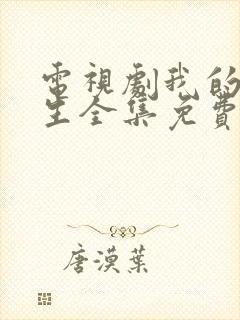 電視劇我的
生全集免費
唐漠葉